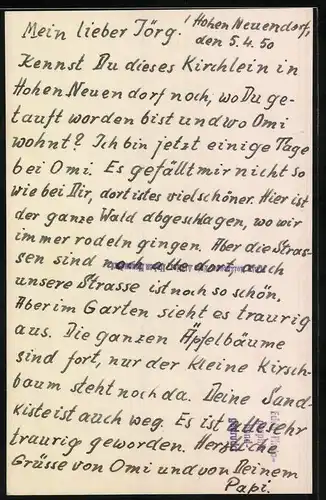 Mein lieber Jörg! Hohen Neuendorf,
den 5.4.50
Kennst Du dieses Kirchlein in
Hohen Neuendorf noch, wo Du ge-
tauft worden bist und wo Omi
wohnt? Ich bin jetzt einige Tage
bei Omi. Es gefällt mir nicht so
wie bei Dir, dort ist es viel schöner. Hier ist
der ganze Wald abgeschlagen, wo wir
immer rodeln gingen. Aber die Stras-
sen sind noch alle dort, auch
unsere Strasse ist noch so schön.
Aber im Garten sieht es traurig
aus. Die ganzen Äpfelbäume
sind fort, nur der kleine Kirsch-
baum steht noch da. Deine Sand-
kiste ist auch weg. Es ist alles sehr
traurig geworden. Herzliche
Grüsse von Omi und von Deinem
Papi.